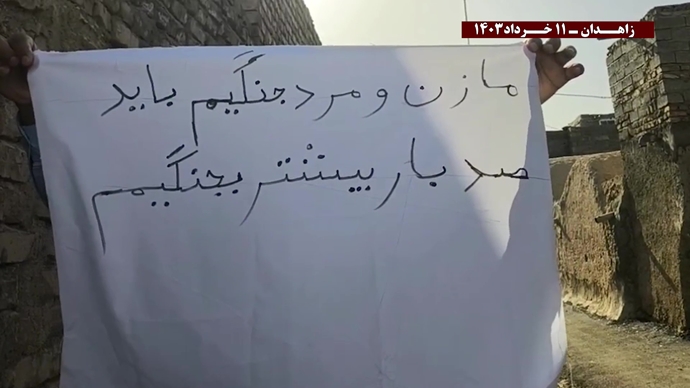 زاهدان ـ ۱۱ خرداد ۱۴۰۳
ما زن و مرد جنگیم باید
صد بار بیشتر بجنگیمم